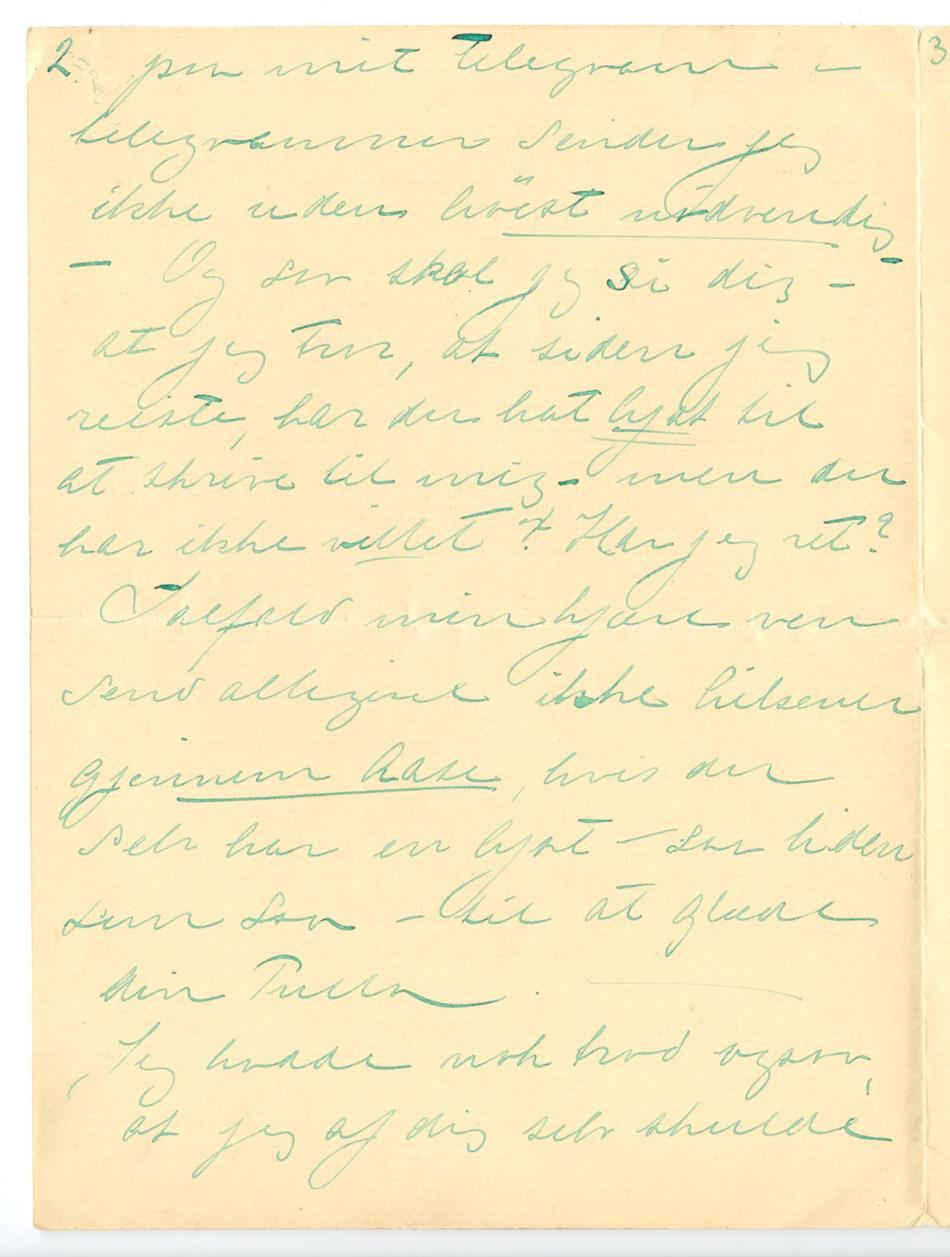 2 paa mit telegram –
telegrammer sender jeg
ikke uden höist nödvendig
– Og saa skal jeg si dig –
at jeg tror, at siden jeg
reiste, har du hat lyst til
at skrive til mig – men du
har ikke villet? Har jeg ret?
Ialfald min kjære ven
send alligevel ikke hilsener
gjennem Aase, hvis du
selv har en lyst – saa liden
som saa – til at glæde
din Tulla.
Jeg hadde nok trod ogsaa,
at jeg af dig selv skulde
3